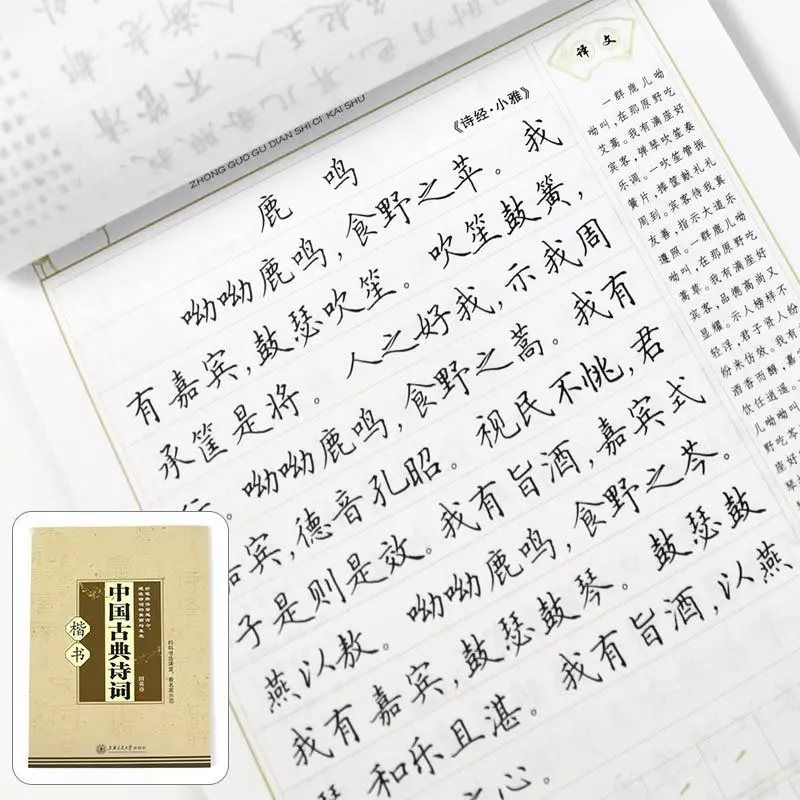 ZHONG GUO GU DIAN SHI CI KAI SHU
《诗经·小雅》
鹿 鸣
呦呦鹿鸣，食野之苹。我
有嘉宾，鼓瑟吹笙。吹笙鼓簧，
承筐是将。人之好我，示我周
行。呦呦鹿鸣，食野之蒿。我有
嘉宾，德音孔昭。视民不恌，君
子是则是效。我有旨酒，嘉宾式
燕以敖。呦呦鹿鸣，食野之芩。
我有嘉宾，鼓瑟鼓琴。鼓瑟鼓
琴，和乐且湛。我有旨酒，以燕
之心。
译文
一群鹿儿呦
呦叫，在那原野吃
艾蒿。我有满座好
宾客，弹琴吹笙奏
乐调。一吹笙管振
簧片，捧筐献礼礼
周到。宾客待我真
友善，指示大道乐
遵照。一群鹿儿呦
呦叫，在那原野吃
蒿草。我有满座好
宾客，品德高尚又
显耀。示人榜样不
轻浮，君子贤人纷
纷来仿效。我有
酒香而醇，嘉
饮任逍遥。
儿呦呦叫
野吃芩
座好
琴
楷书
中国古典诗词
田英章
上海交通大学出版社